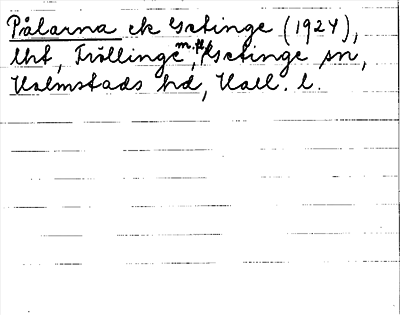 Pålarna ek Getinge (1924),
lht, Tröllinge m.fl., Getinge sn,
Halmstads hd, Hall. l.